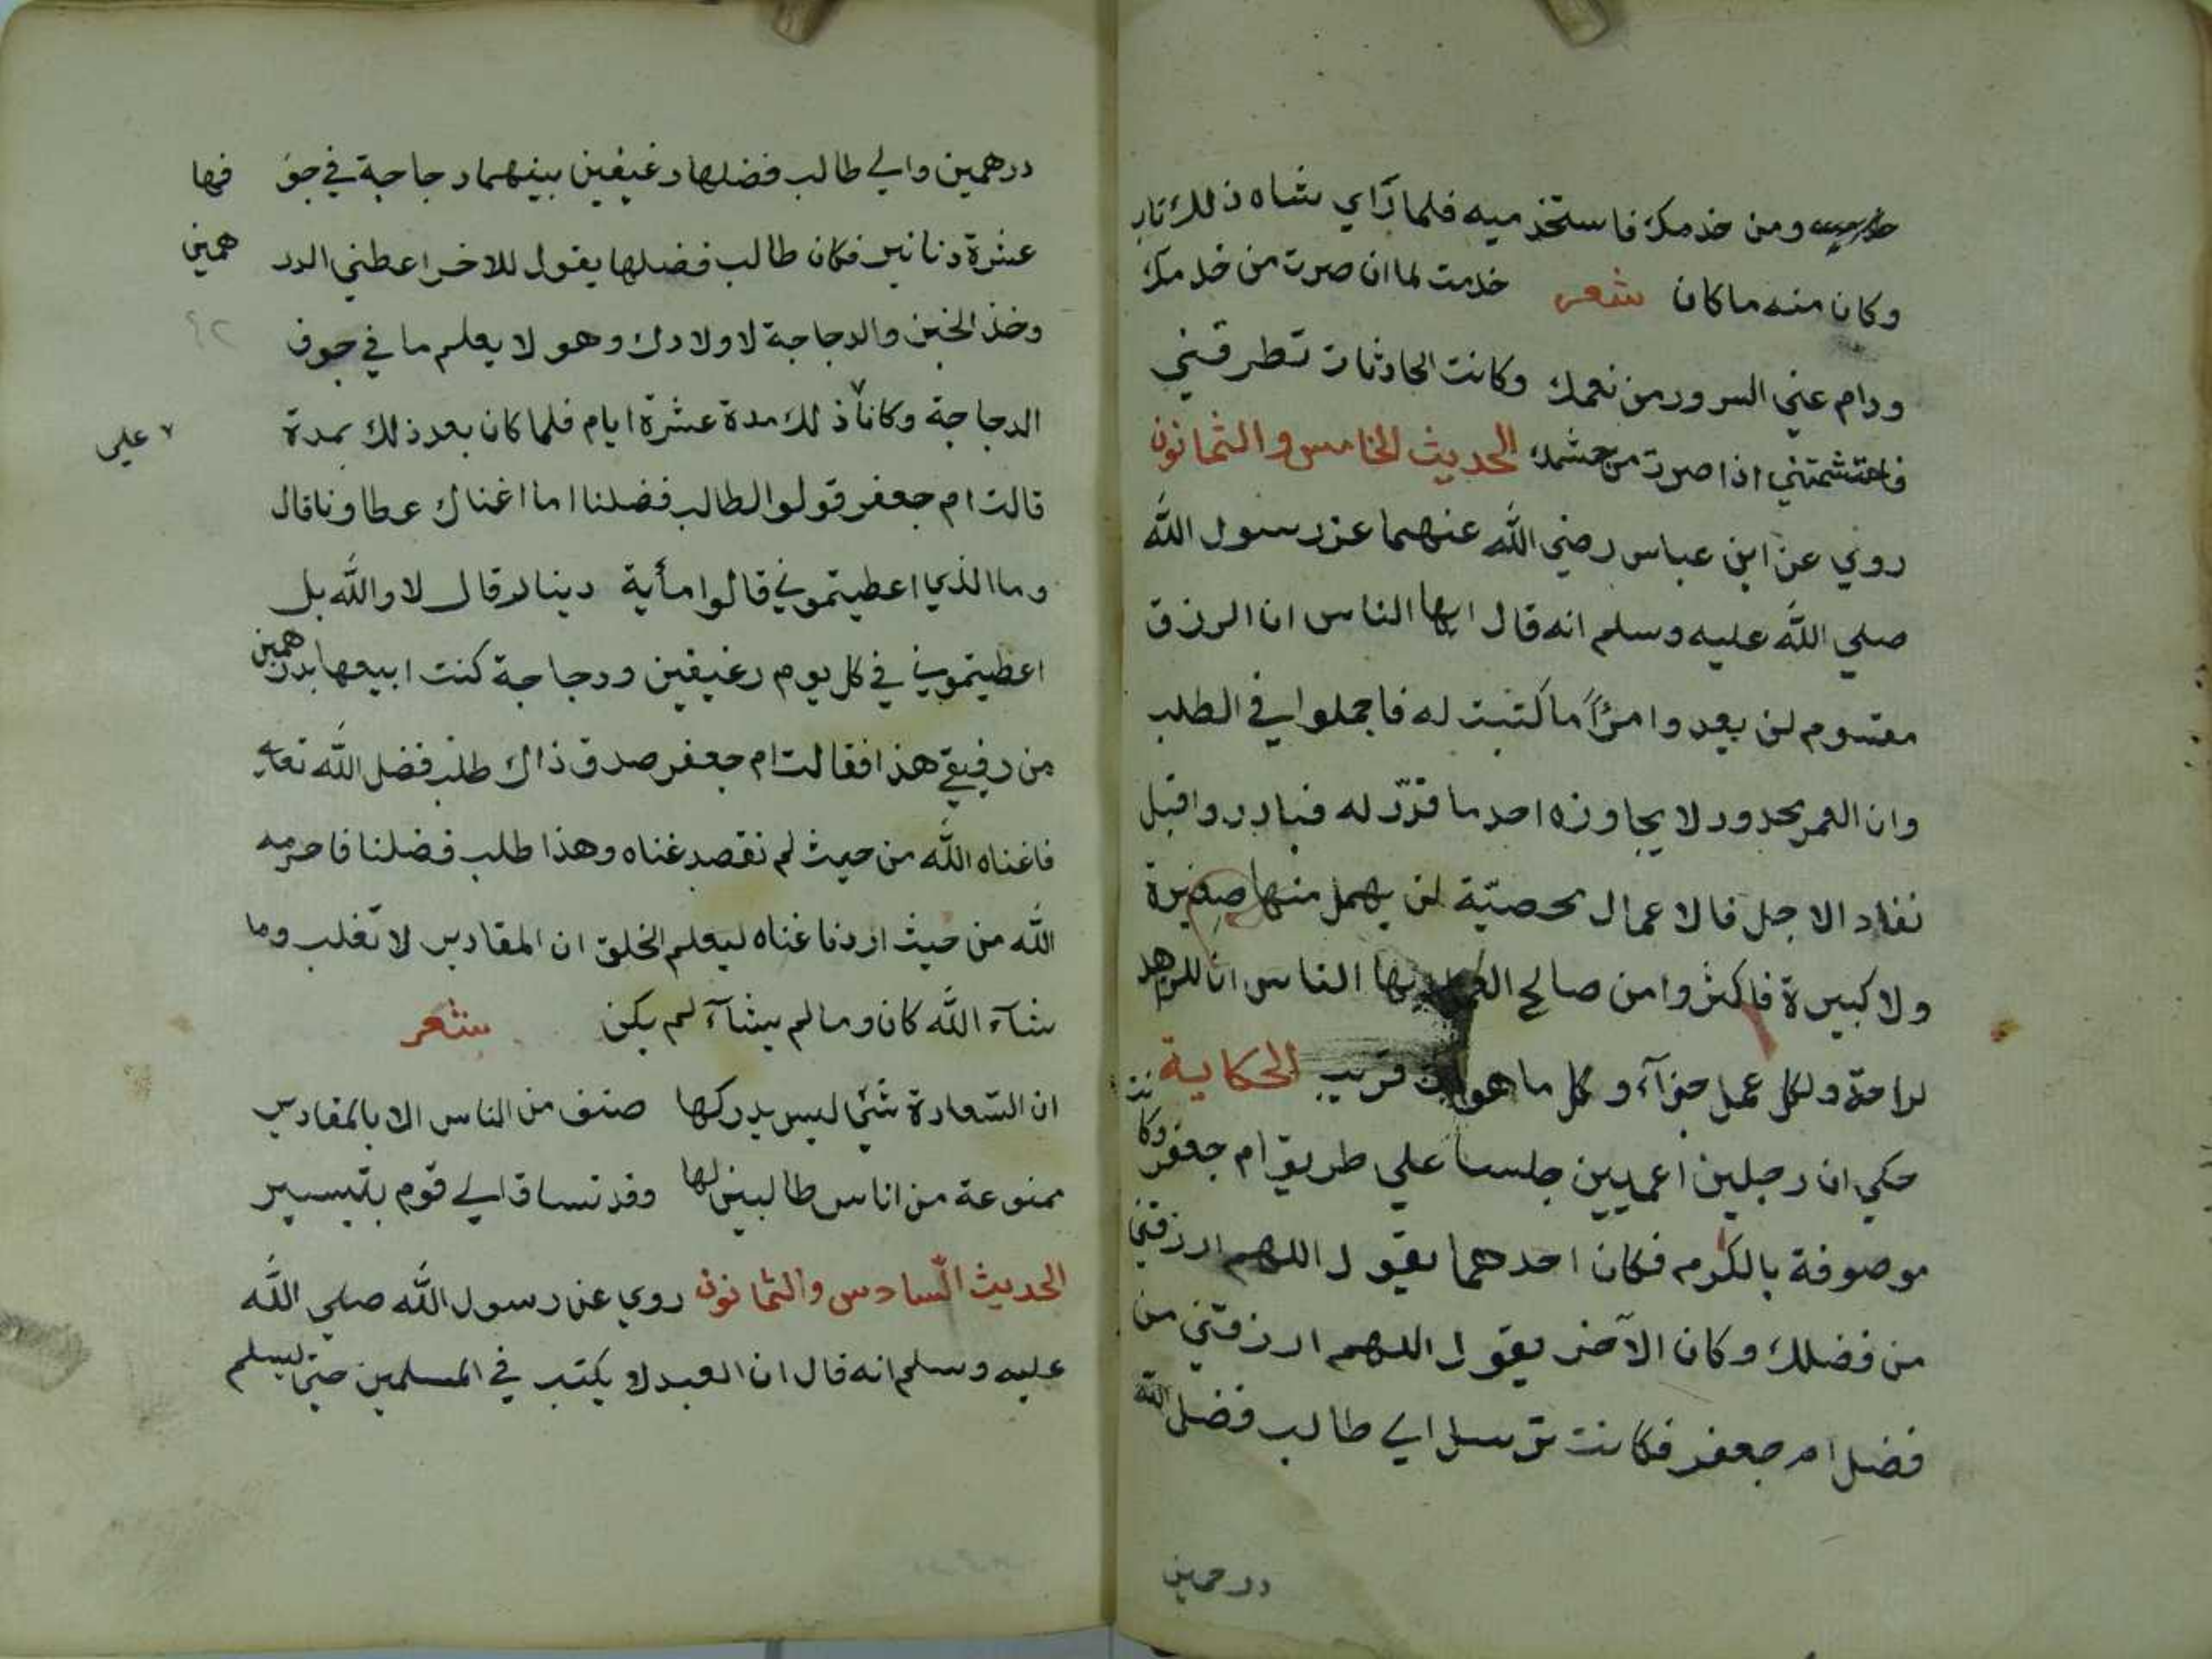 ومن خدمك فاستخدميه فلما رآي شاه ذلك تاب
وكان منه ما كان شعر خدمت لما ان صرت من خدمك
ودام عني السرور من نعمك وكانت الحادثات تطرقني
فاحتشمتني اذا صرت من حشمك الحديث الخامس والثمانون
روي عن ابن عباس رضي الله عنهما عن رسول الله
صلي الله عليه وسلم انه قال ايها الناس ان الرزق
مقسوم لن يعدوا مرأً ما كتب له فاجملوا في الطلب
وان العمر محدود لا يجاوزه احد ما قدّر له فبادروا قبل
نفاد الاجل فالاعمال محصيّة لن يهمل منها صغيرة
ولا كبيرة فاكثروا من صالح العمل ايها الناس ان للزهد
لراحة ولكل عمل جزآء وكل ما هو آت قريب الحكاية
حكي ان رجلين اعميين جلسا علي طريق ام جعفر وكانت
موصوفة بالكرم فكان احدهما يقول اللهم ارزقني
من فضلك وكان الآخر يقول اللهم ارزقني من
فضل ام جعفر فكانت ترسل الي طالب فضل الله
درهمين
درهمين والي طالب فضلها رغيفين بينهما دجاجة في جوفها
عشرة دنانير فكان طالب فضلها يقول للاخر اعطني الدرهمين
وخذ الخبز والدجاجة لاولادك وهو لا يعلم ما في جوف
الدجاجة وكانا ٧ ذلك مدة عشرة ايام فلما كان بعد ذلك بمدة
٧ علي
قالت ام جعفر قولوا لطالب فضلنا اما اغناك عطاونا قال
وما الذي اعطيتموني قالوا مأية دينار قال لا والله بل
اعطيتموني في كل يوم رغيفين ودجاجة كنت ابيعها بدرهمين
من رفيقي هذا فقالت ام جعفر صدق ذاك طلب فضل الله تعالي
فاغناه الله من حيث لم نقصد غناه وهذا طلب فضلنا فاحرمه
الله من حيث اردنا غناه ليعلم الخلق ان المقادير لا تغلب وما
شآء الله كان وما لم يشآء لم يكن شعر
ان السّعادة شئي ليس يدركها صنف من الناس الا بالمقادير
ممنوعة من اناس طالبين لها وقد تساق الي قوم بتيسير
الحديث السّادس والثمانون روي عن رسول الله صلي الله
عليه وسلم انه قال ان العبد لا يكتب في المسلمين حتي يسلم